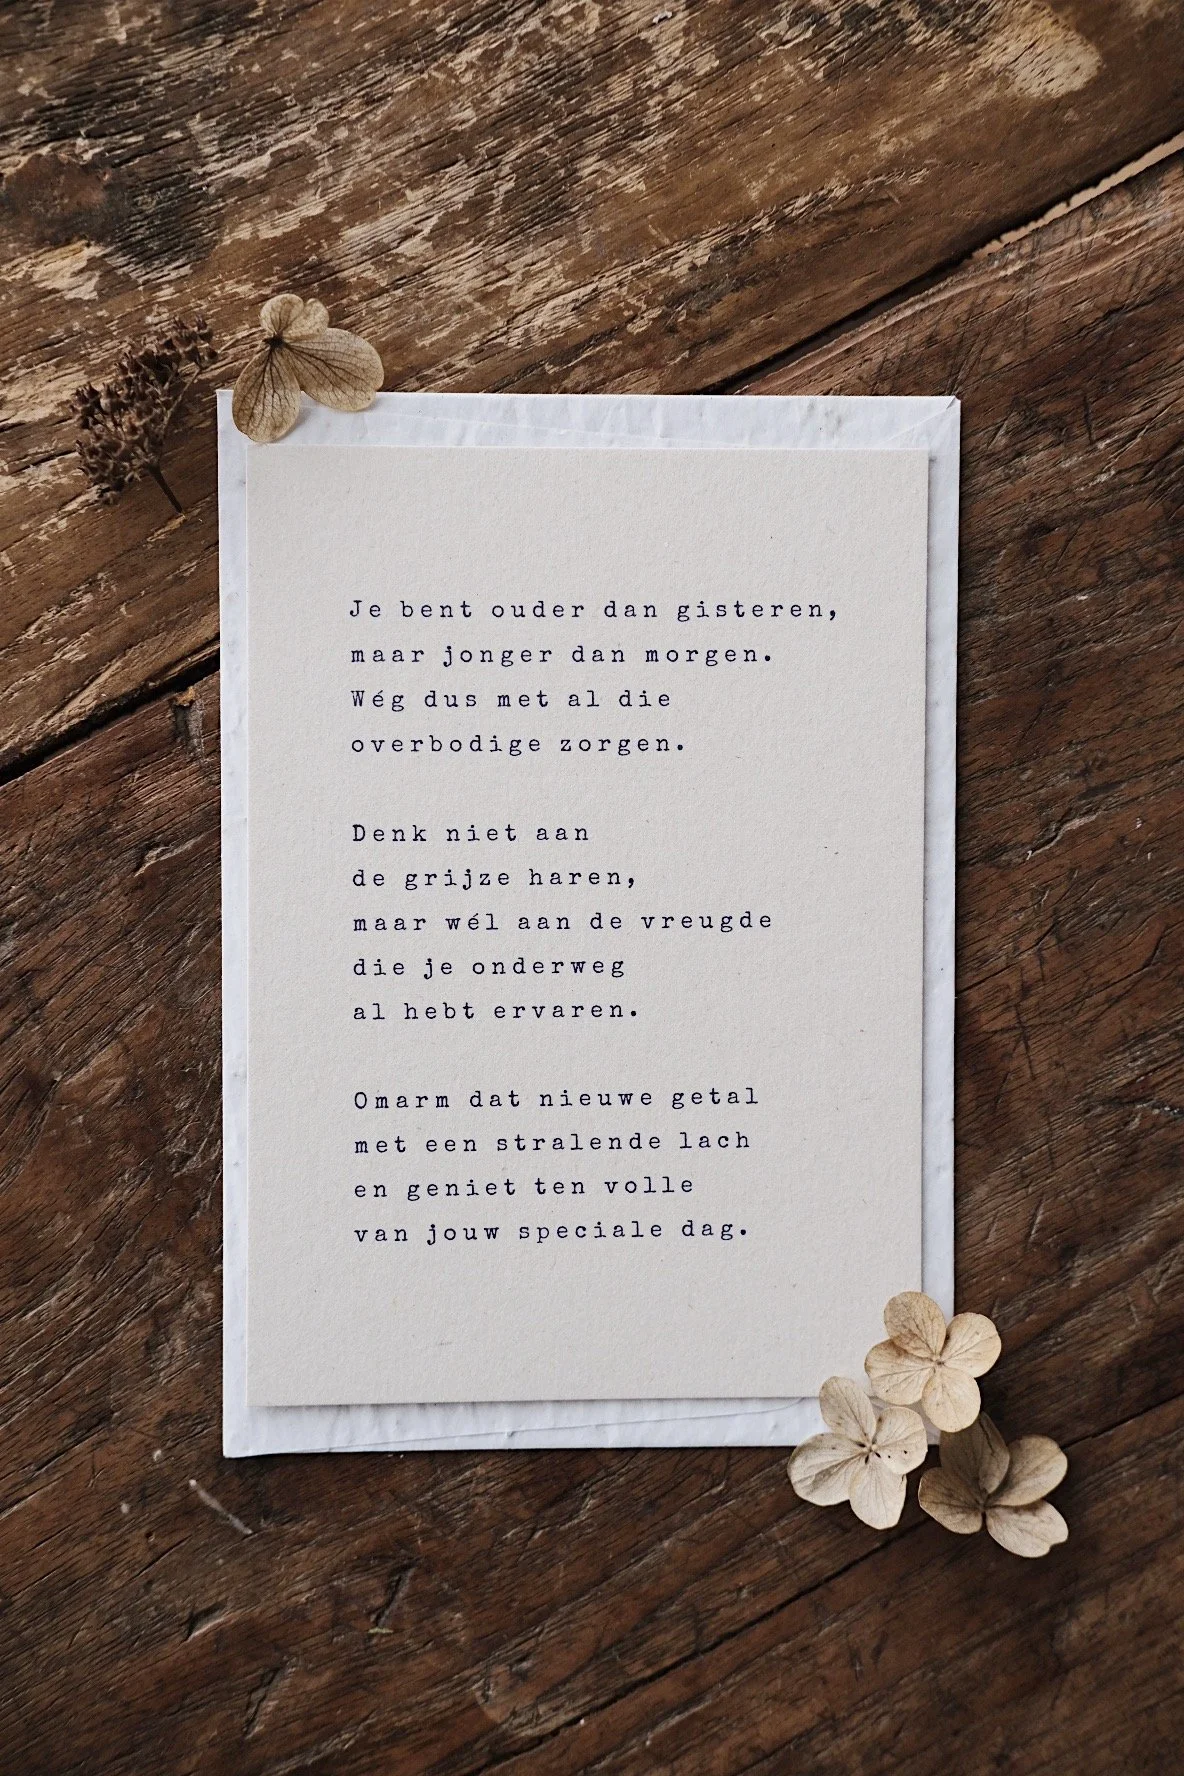 Je bent ouder dan gisteren,
maar jonger dan morgen.
Wég dus met al die
overbodige zorgen.
Denk niet aan
de grijze haren,
maar wél aan de vreugde
die je onderweg
al hebt ervaren.
Omarm dat nieuwe getal
met een stralende lach
en geniet ten volle
van jouw speciale dag.